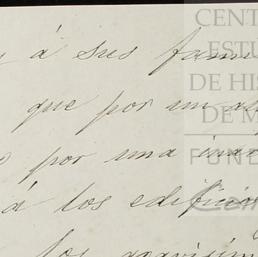 y á sus fami
que por un
por una
á los edificios
los gravísim
CENT
ESTU
DE HIS
DE M
FUND